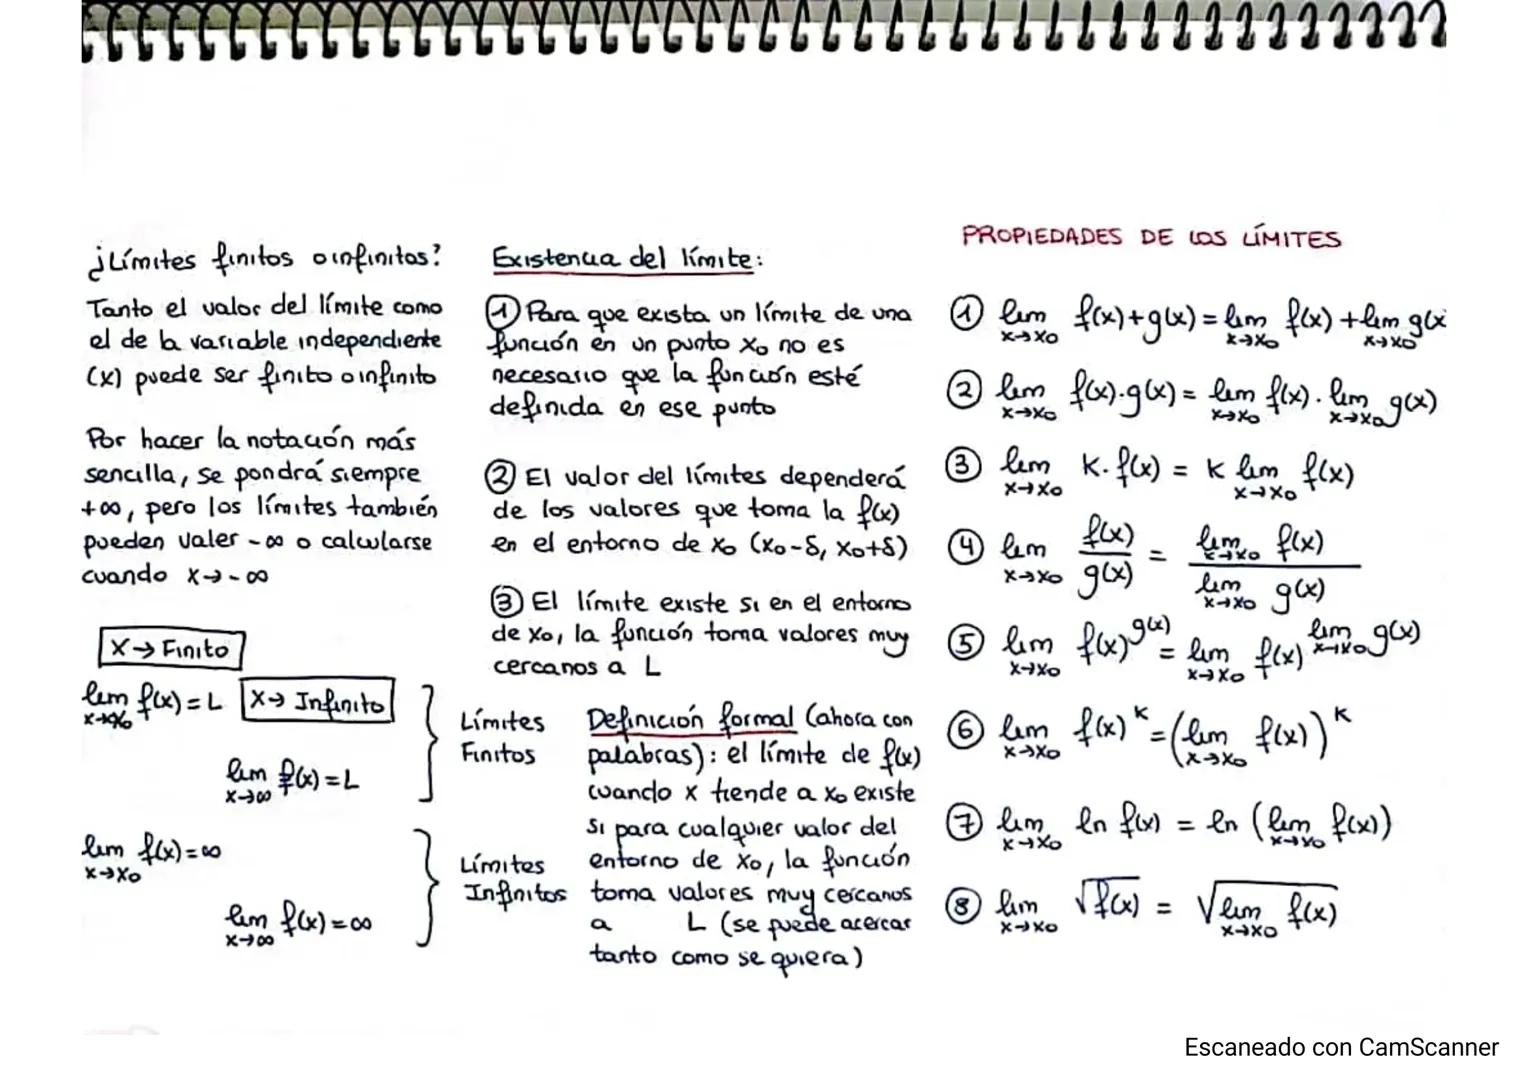 ¿Límites finitos o infinitos?
Tanto el valor del límite como
el de la variable independiente
(x) puede ser finito o infinito
Por hacer la notación más
sencilla, se pondrá siempre
+∞, pero los límites también
pueden valer -∞ o calcularse
cuando x→-∞
X→ Finito
lim f(x) = L
x→x₀
X→ Infinito
lim f(x) = L
x→∞
Límites
Finitos
lim f(x) = ∞
x→x₀
lim f(x) = ∞
x→∞
Límites
Infinitos
Existencia del límite:
① Para que exista un límite de una
función en un punto x₀ no es
necesario que la función esté
definida en ese punto
② El valor del límites dependerá
de los valores que toma la f(x)
en el entorno de x₀ (x₀-δ, x₀+δ)
③ El límite existe si en el entorno
de x₀, la función toma valores muy
cercanos a L
Definición formal (ahora con
palabras): el límite de f(x)
cuando x tiende a x₀ existe
si para cualquier valor del
entorno de x₀, la función
toma valores muy cercanos
a L (se puede acercar
tanto como se quiera)
PROPIEDADES DE LOS LÍMITES
① lim x→x₀ f(x)+g(x) = lim x→x₀ f(x) + lim x→x₀ g(x
② lim x→x₀ f(x)·g(x) = lim x→x₀ f(x) · lim x→x₀ g(x)
③ lim x→x₀ K·f(x) = K lim x→x₀ f(x)
④ lim x→x₀ f(x)/g(x) = lim x→x₀ f(x) / lim x→x₀ g(x)
⑤ lim x→x₀ f(x)^g(x) = lim x→x₀ f(x)^lim x→x₀ g(x)
⑥ lim x→x₀ f(x)^K = (lim x→x₀ f(x))^K
⑦ lim x→x₀ ln f(x) = ln (lim x→x₀ f(x))
⑧ lim x→x₀ √f(x) = √lim x→x₀ f(x)
Escaneado con CamScanner